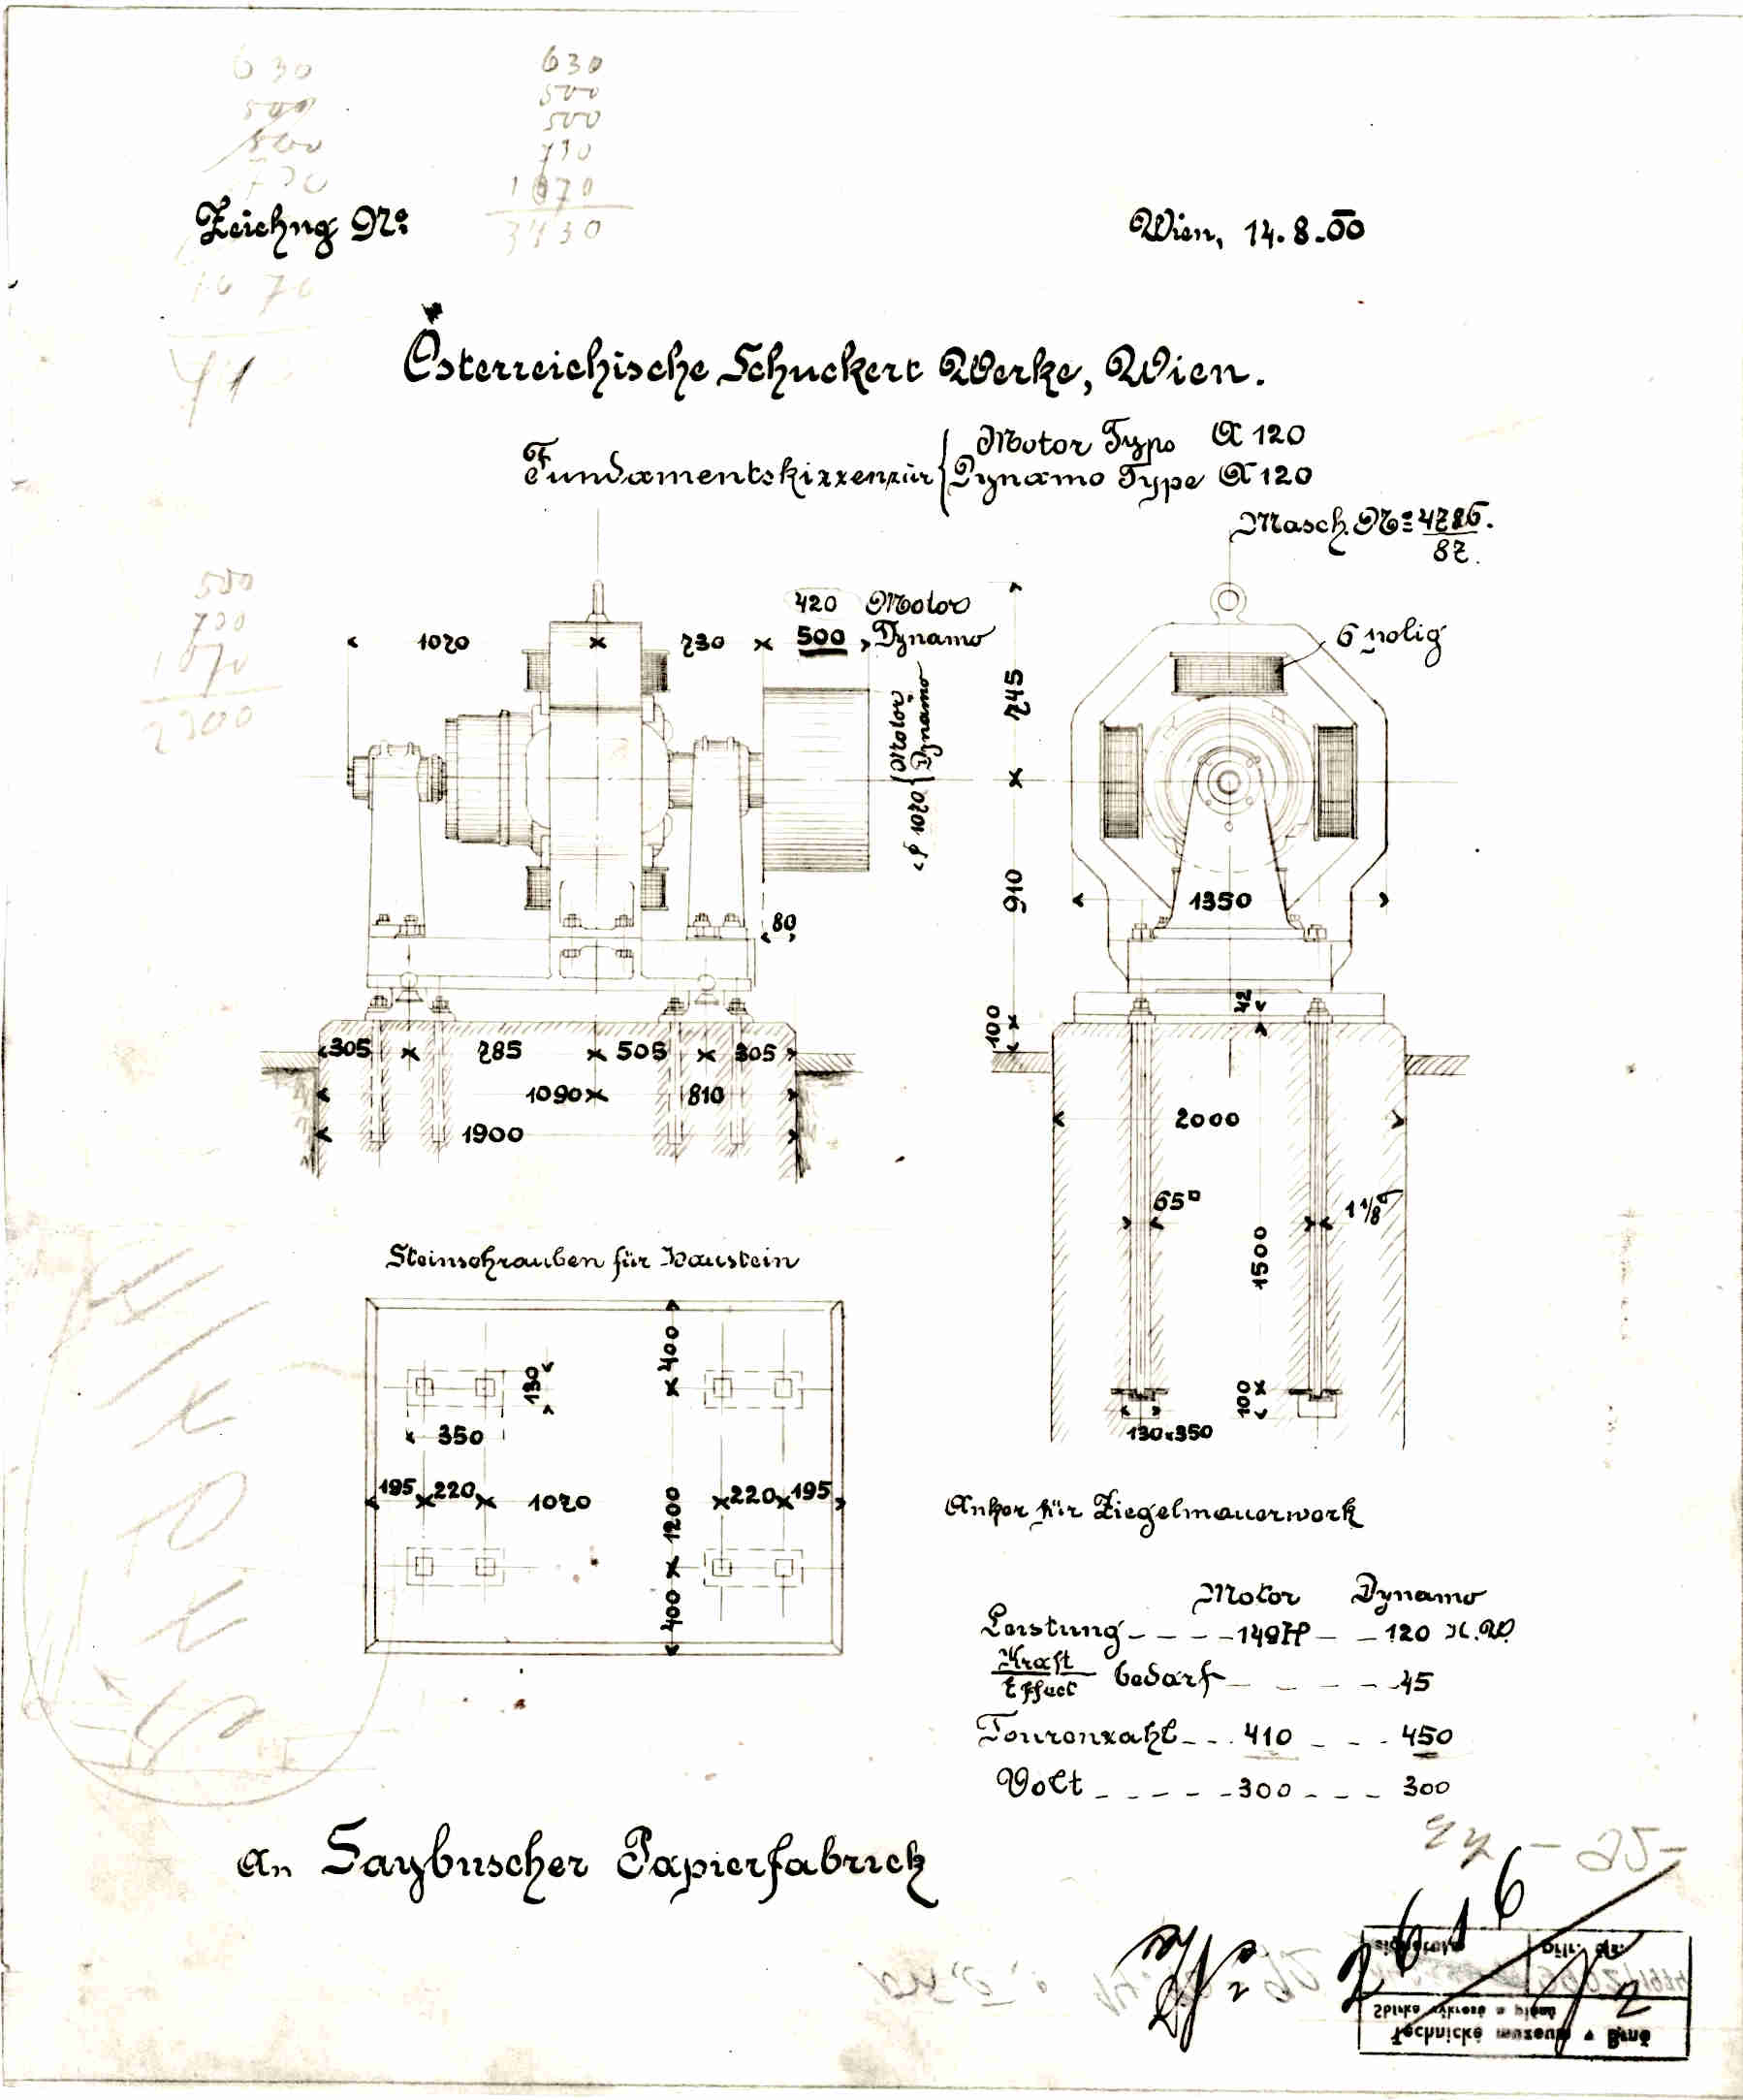 630
500
500
730
1070
3430
630
Zeichng No:
Wien, 14.8.00
Österreichische Schuckert Werke, Wien.
Fundamentskizzen für { Motor Type A 120
Dynamo Type A 120
Masch. No: 4786.
87.
500
730
1070
2300
420 Motor
1070 730 500 Dynamo
6 polig
745
ϕ 1070 { Motor Dynamo
910
1350
80
42
100
305 785 505 305
1090 810
1900
2000
65
1 1/8"
1500
100
130x350
Steinschrauben für Haustein
400
130
350
195 220 1070 220 195
1200
400
Anker für Ziegelmauerwerk
Motor Dynamo
Leistung - - - - 149 HP - - 120 K.W.
Kraft
Effect bedarf - - - - - 45
Tourenzahl - - - 410 - - - 450
Volt - - - - - 300 - - - 300
An Saybuscher Papierfabrick
2616
signatura přír. čís.
Sbírka výkresů a plánů
Technické muzeum v Brně